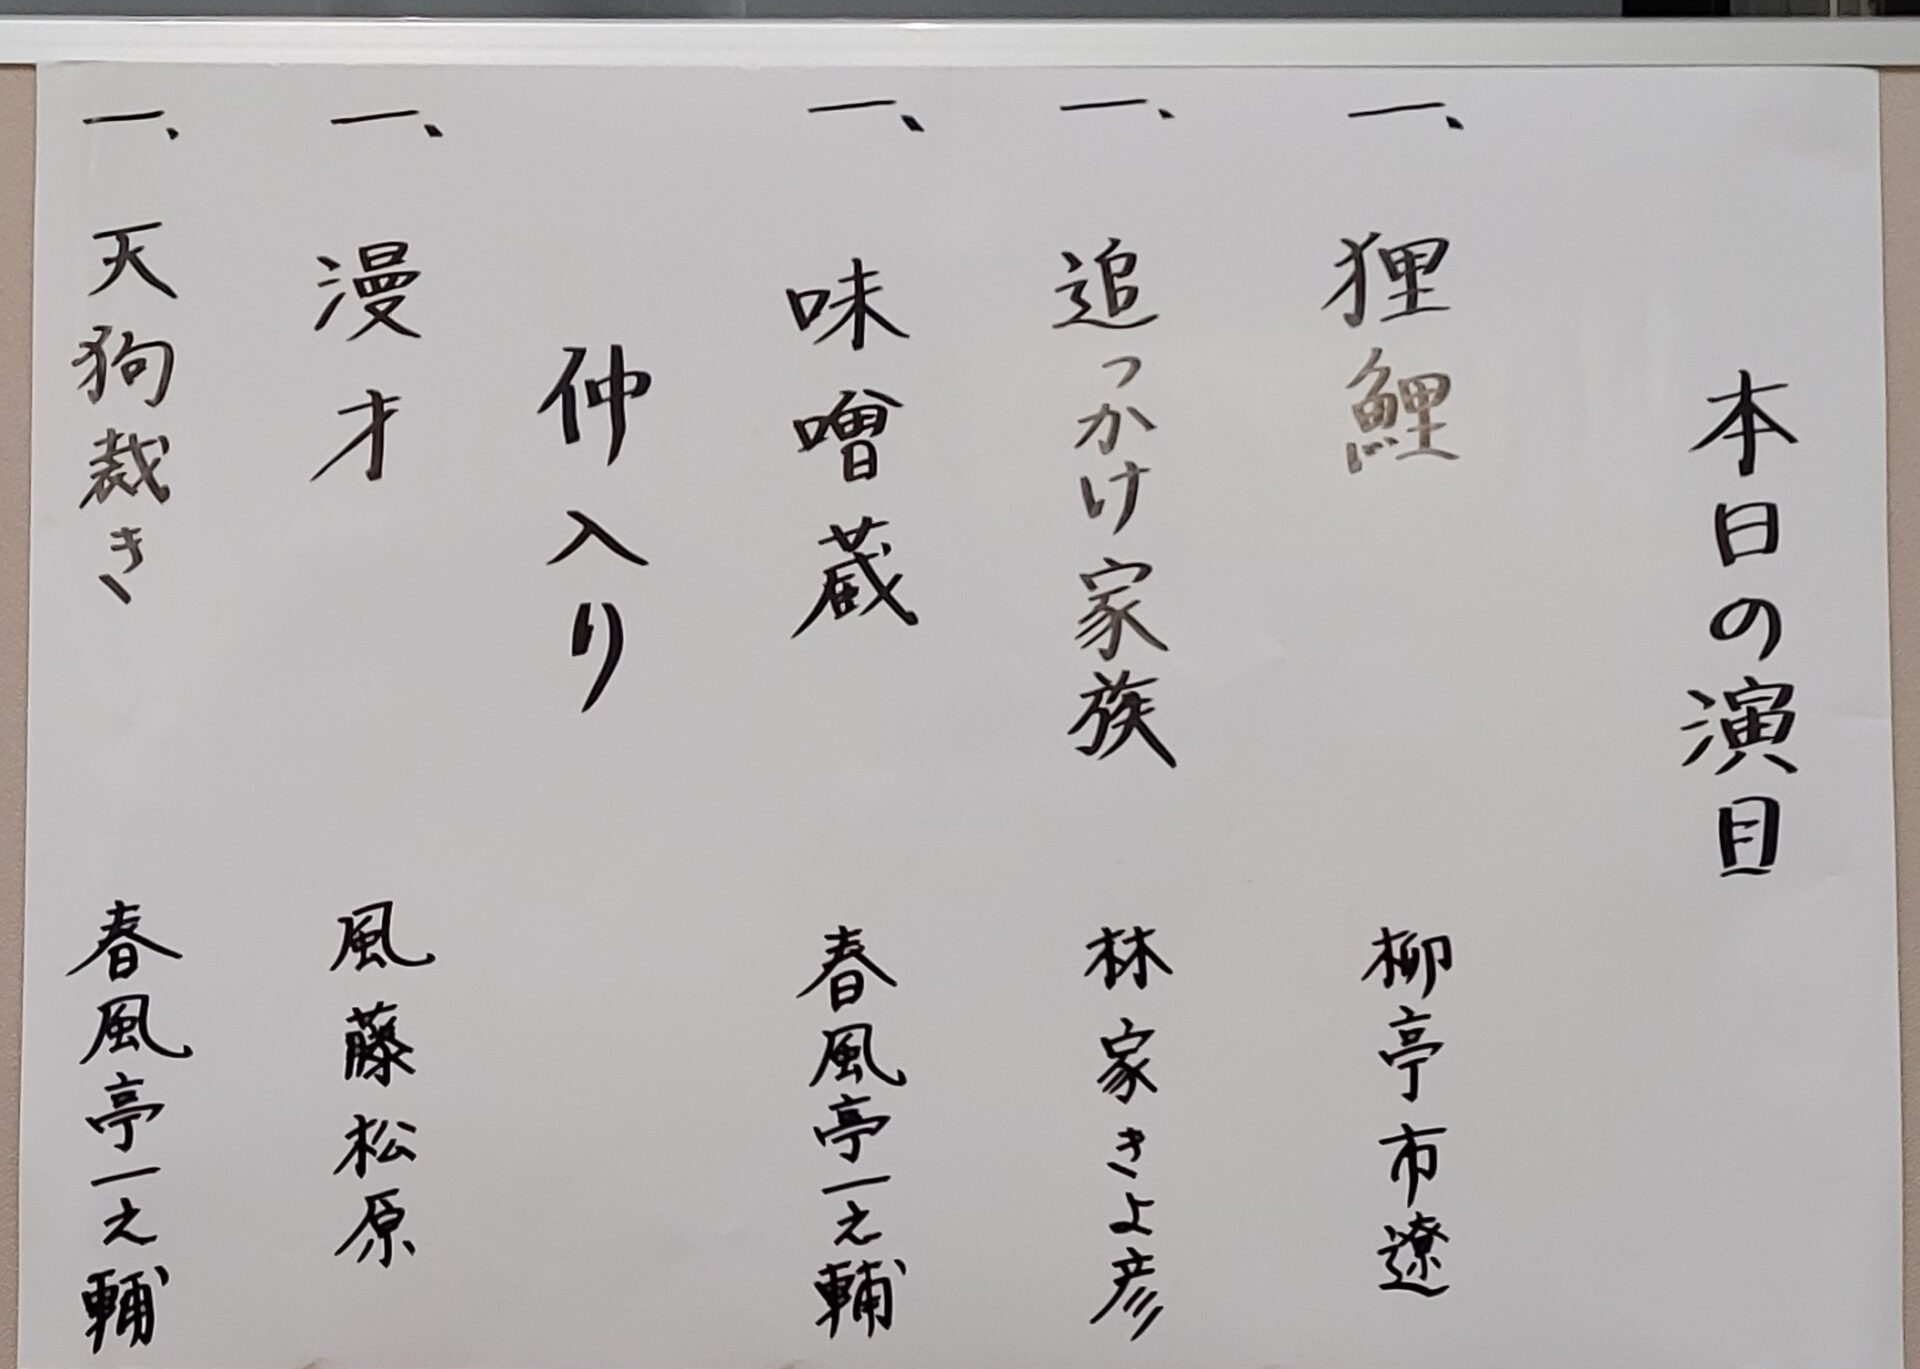 本日の演目
一、狸鯉 柳亭市遼
一、追っかけ家族 林家きよ彦
一、味噌蔵 春風亭一之輔
仲入り
一、漫才 風藤松原
一、天狗裁き 春風亭一之輔